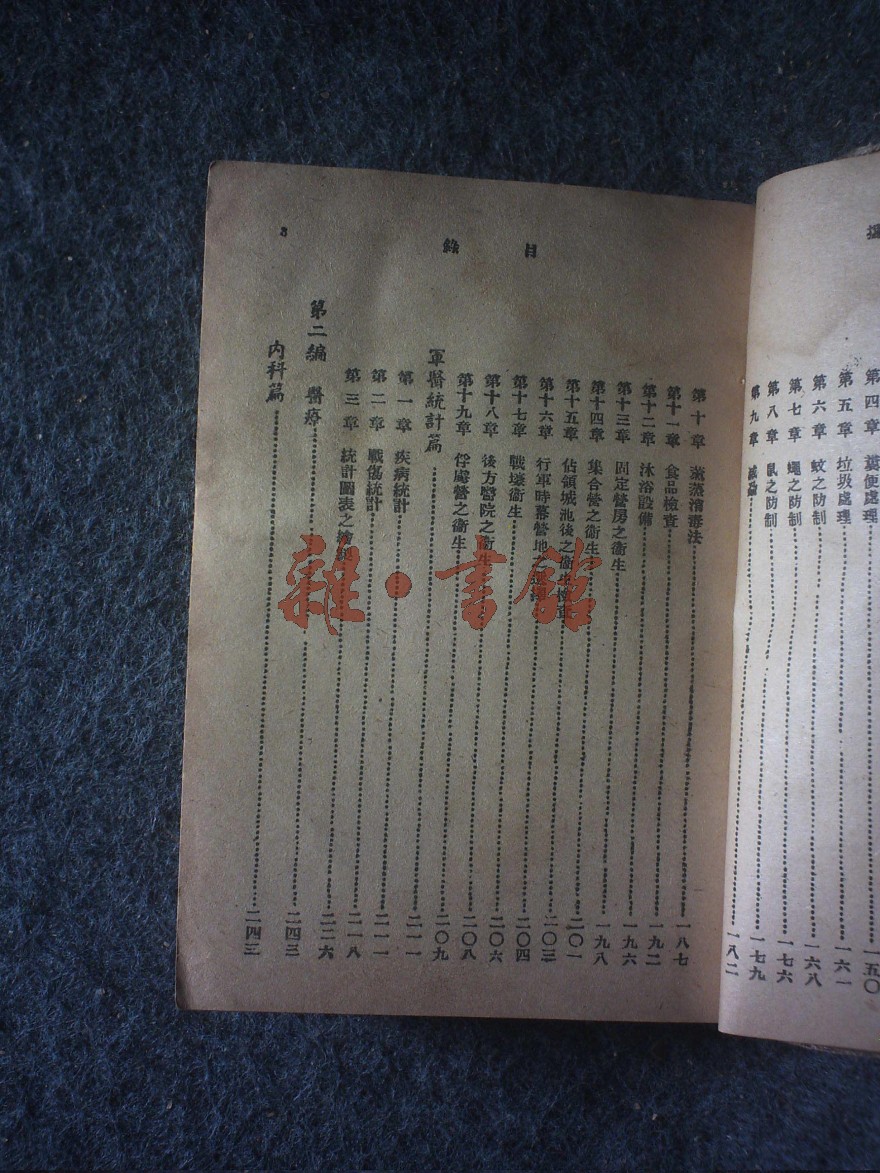 第四章 糞便處理 一五〇
第五章 垃圾處理 一六一
第六章 蚊之防制 一六八
第七章 蠅之防制 一七六
第八章 鼠之防制 一七九
第九章 滅蝨 一八二
目錄
3
第十章 薰蒸消毒法 一八七
第十一章 食品檢查 一九二
第十二章 沐浴設備 一九六
第十三章 固定營房之衞生 一九八
第十四章 集合營之衞生 二〇一
第十五章 佔領城池後之衞生檢查 二〇三
第十六章 行軍時落營地之選擇 二〇四
第十七章 戰壕衞生 二〇六
第十八章 後方醫院之衞生 二〇八
第十九章 俘虜營之衞生 二〇九
軍醫統計篇 二一一
第一章 疾病統計 二一一
第二章 戰傷統計 二一八
第三章 統計圖表之繪製 二二六
第二編 醫療 二四三
內科篇 二四三
雜·書館